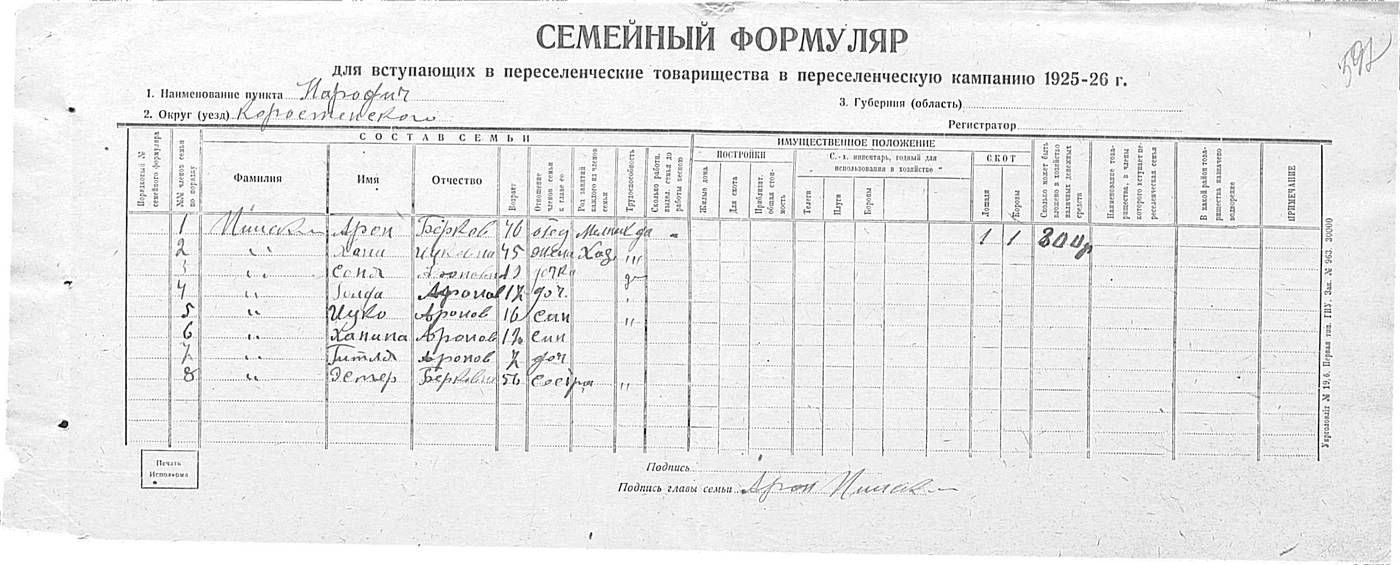 СЕМЕЙНЫЙ ФОРМУЛЯР
для вступающих в переселенческие товарищества в переселенческую кампанию 1925-26 г.
597
1. Наименование пункта Народич
3. Губерния (область)
2. Округ (уезд) Коростенского
Регистратор
Порядковый № семейного формуляра
№№ членов семьи по порядку
СОСТАВ СЕМЬИ
Фамилия
Имя
Отчество
Возраст
Отношение членов семьи к главе ее
Род занятий каждого из членов семьи
Трудоспособность
Сколько работн. выдел. семья до работы весною
ИМУЩЕСТВЕННОЕ ПОЛОЖЕНИЕ
ПОСТРОЙКИ
Жилые дома
Для скота
Приблизит. общая стоимость
С.-х. инвентарь, годный для использования в хозяйстве
Телеги
Плуги
Бороны
СКОТ
Лошади
Коровы
Сколько может быть вложено в хозяйство наличных денежных средств
Наименование товарищества, в члены которого вступает переселенческая семья
В какой район товарищества назначено водворение
ПРИМЕЧАНИЕ
1 Пинский Арон Берков 46 отец Мельник да - 1 1 300р
2 " Хана Ицковна 45 жена Хаз. "
3 " Соня Ароновна 19 дочка
4 " Голда Аронов 17 доч. "
5 " Ицко Аронов 16 син "
6 " Ханина Аронов 12 син
7 " Гитля Аронов 7 доч
8 " Эстер Берковна 56 сестра "
Печать Исполкома
Подпись
Подпись главы семьи Арон Пинский
Укрголовліт № 19,6. Первая тип. ГИУ. Зак. № 963. 30000